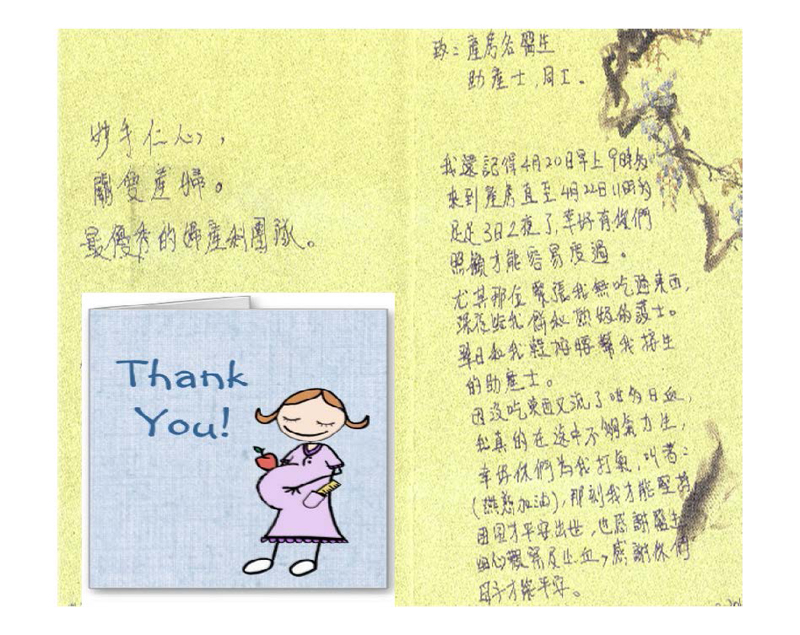 妙手仁心，
關愛產婦。
最優秀的婦產科團隊。
Thank
You!
致：產房各醫生
助產士，同工。
我還記得4月20日早上9時多
來到產房直至4月22日11時多
足足3日2夜了，幸好有你們
照顧才能容易度過。
尤其那位緊張我無吃過東西，
深夜給我餅和熱奶的護士。
翌日和我按腰幫我接生
的助產士。
因沒吃東西又流了咁多日血，
我真的在途中不夠氣力生，
幸好你們為我打氣，叫着：
加油)，那刻我才能堅持
囝囝才平安出世，也感謝醫生
細心觀察及止血，感謝你們
母子才能平安。